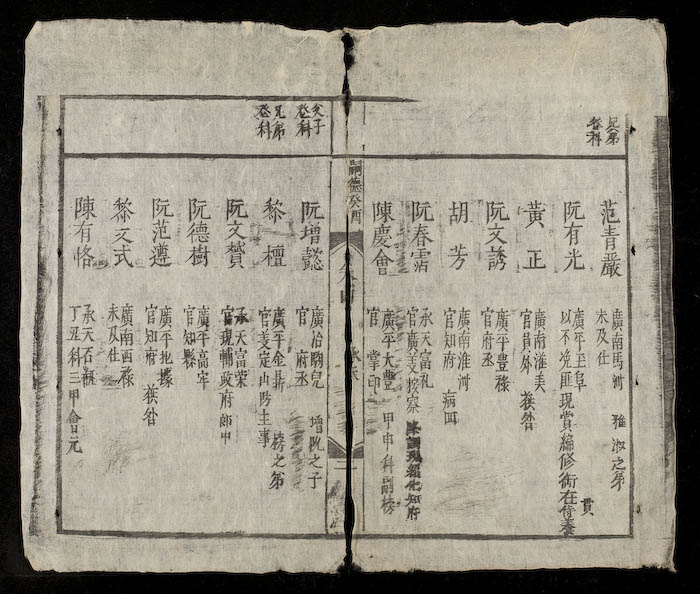 兄弟登科
范青嚴
廣南馬河 雅淑之弟
未及仕
阮有光
廣平至阜 貫
以不免匪現賞編修銜在侍養
黃正
廣南淮美
官員外 獲咎
阮文誘
廣平豊祿
官府丞
胡芳
廣南淮河
官知府 病囬
阮春霑
承天富礼
官廣義按察 降調現紹化知府
陳慶會
廣平大豊 甲申科副榜
官 掌印
嗣德癸酉
父子登科
兄弟登科
阮增懿
增阮之子
官 府丞
黎檀
廣平金
官義定山防主事 榜之弟
阮文贊
承天富荣
官現輔政府郎中
阮德樹
廣平高牢
官知縣
阮范遵
廣平
官知府 獲咎
黎文式
廣南西祿
未及仕
陳有恪
承天石瓶
丁丑科三甲會元